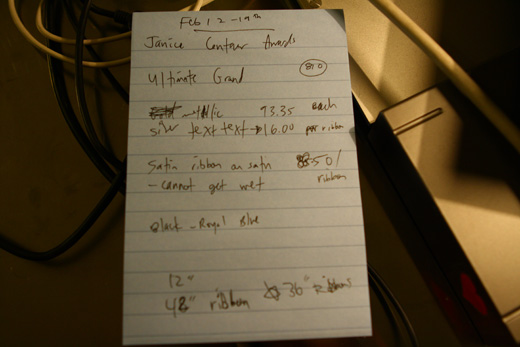 Feb 12-19th
Janice Contour Awards
Ultimate Grand
93.35 each
text text → 16.00 per ribbon
Satin ribbon on satn 50/
- cannot get wet ribbon
Black - Royal Blue
12"
48" ribbon 36" Ribbons